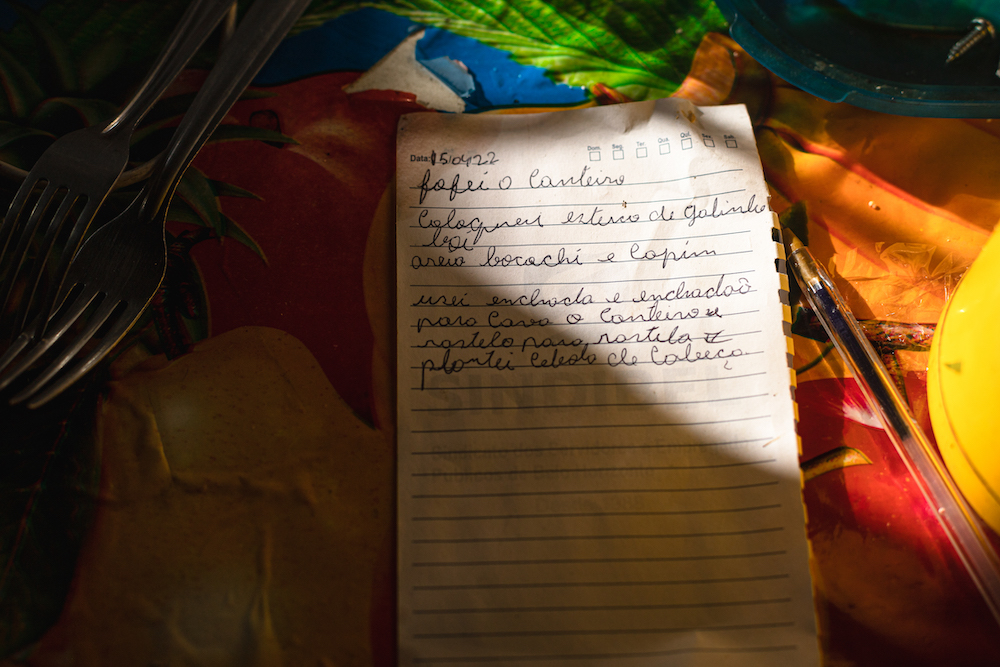 Dom. Seg. Ter. Qua. Qui. Sex. Sab.
Data: 15/04/22
fofei o Canteiro
Coloquei esterco de galinha
boi
areia bocachi e Capim
usei enchada e enchadaõ
para Cava o Canteiro e
rastelo para rastela e
plantei Cebola de Cabeça.